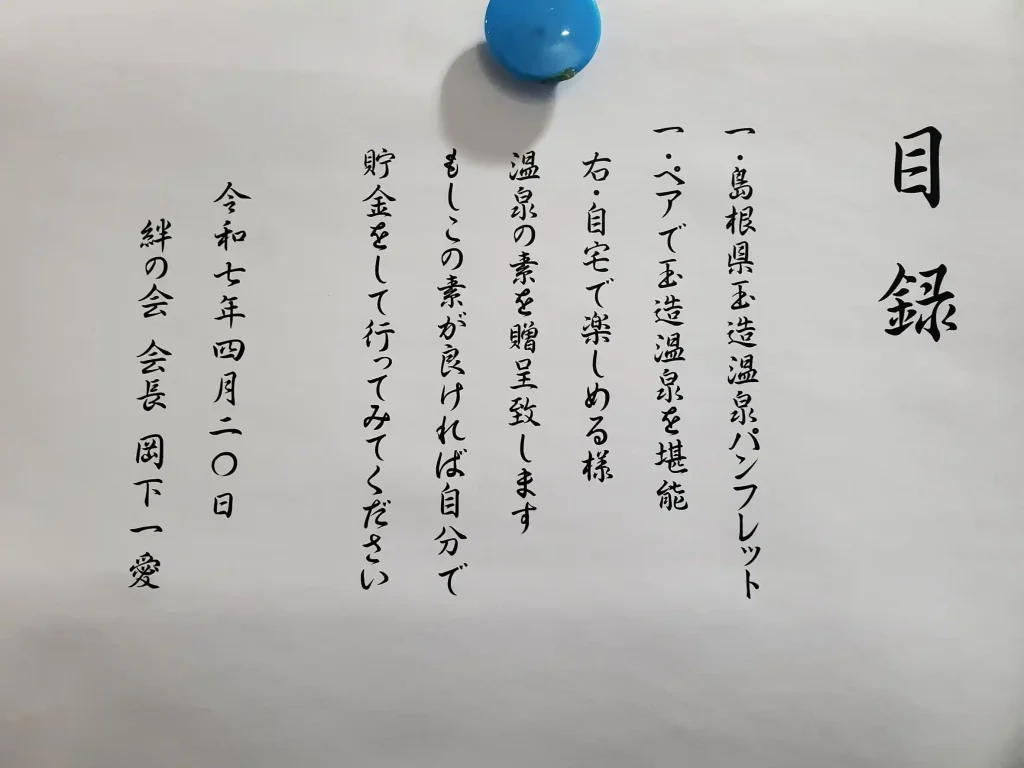 目録
一・島根県玉造温泉パンフレット
一・ペアで玉造温泉を堪能
右・自宅で楽しめる様
温泉の素を贈呈致します
もしこの素が良ければ自分で
貯金をして行ってみてください
令和七年四月二〇日
絆の会 会長 岡下一愛